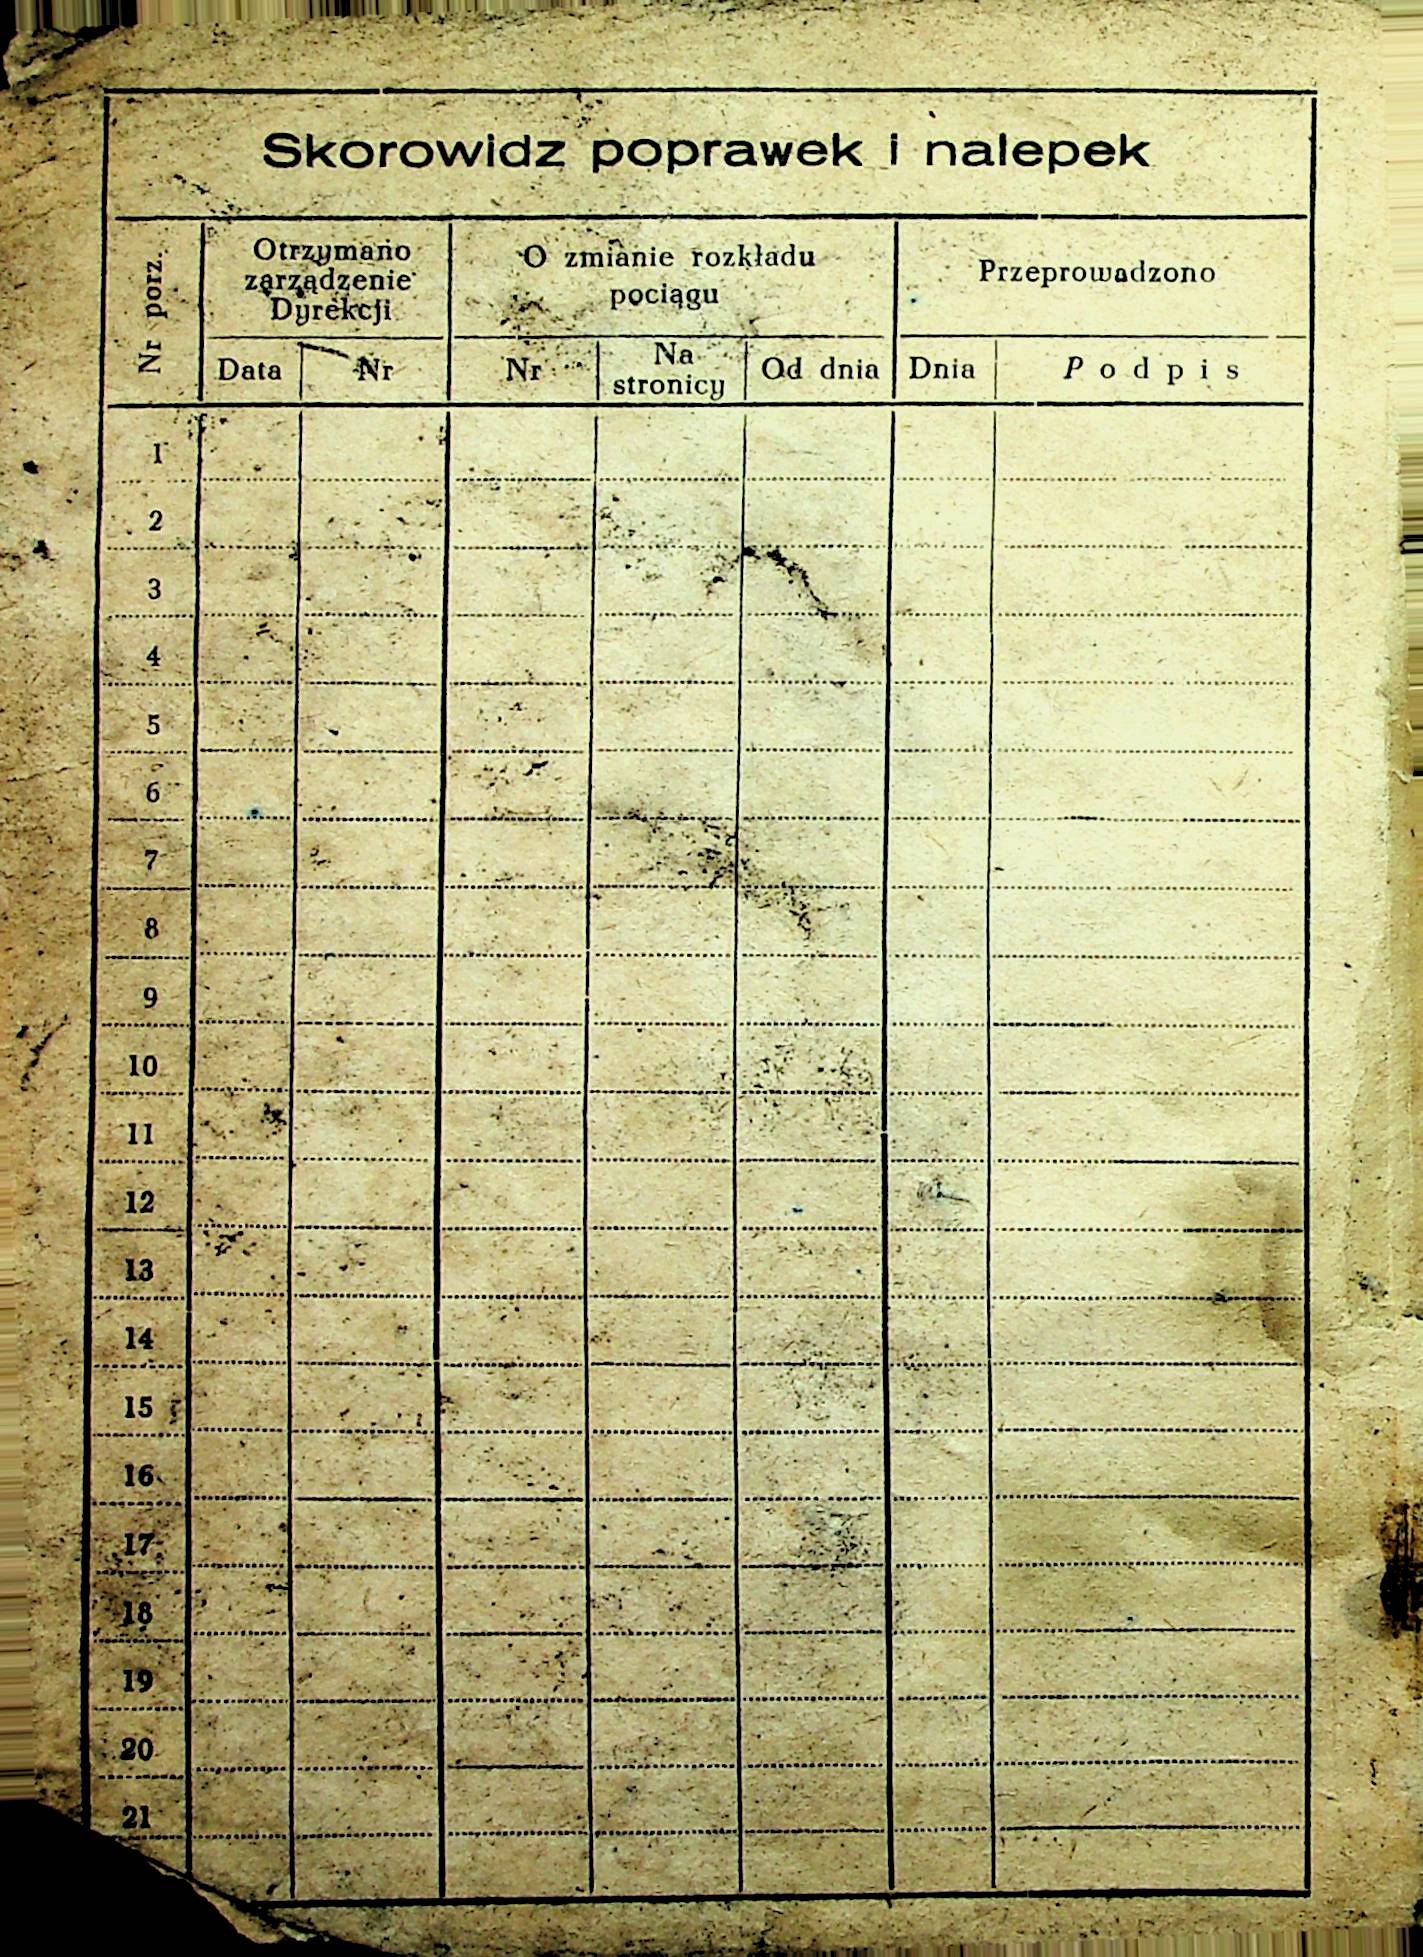 Skorowidz poprawek i nalepek
Nr porz.
Otrzymano
zarządzenie
Dyrekcji
O zmianie rozkładu
pociągu
Przeprowadzono
Data
Nr
Nr
Na
stronicy
Od dnia
Dnia
Podpis
1
2
3
4
5
6
7
8
9
10
11
12
13
14
15
16
17
18
19
20
21